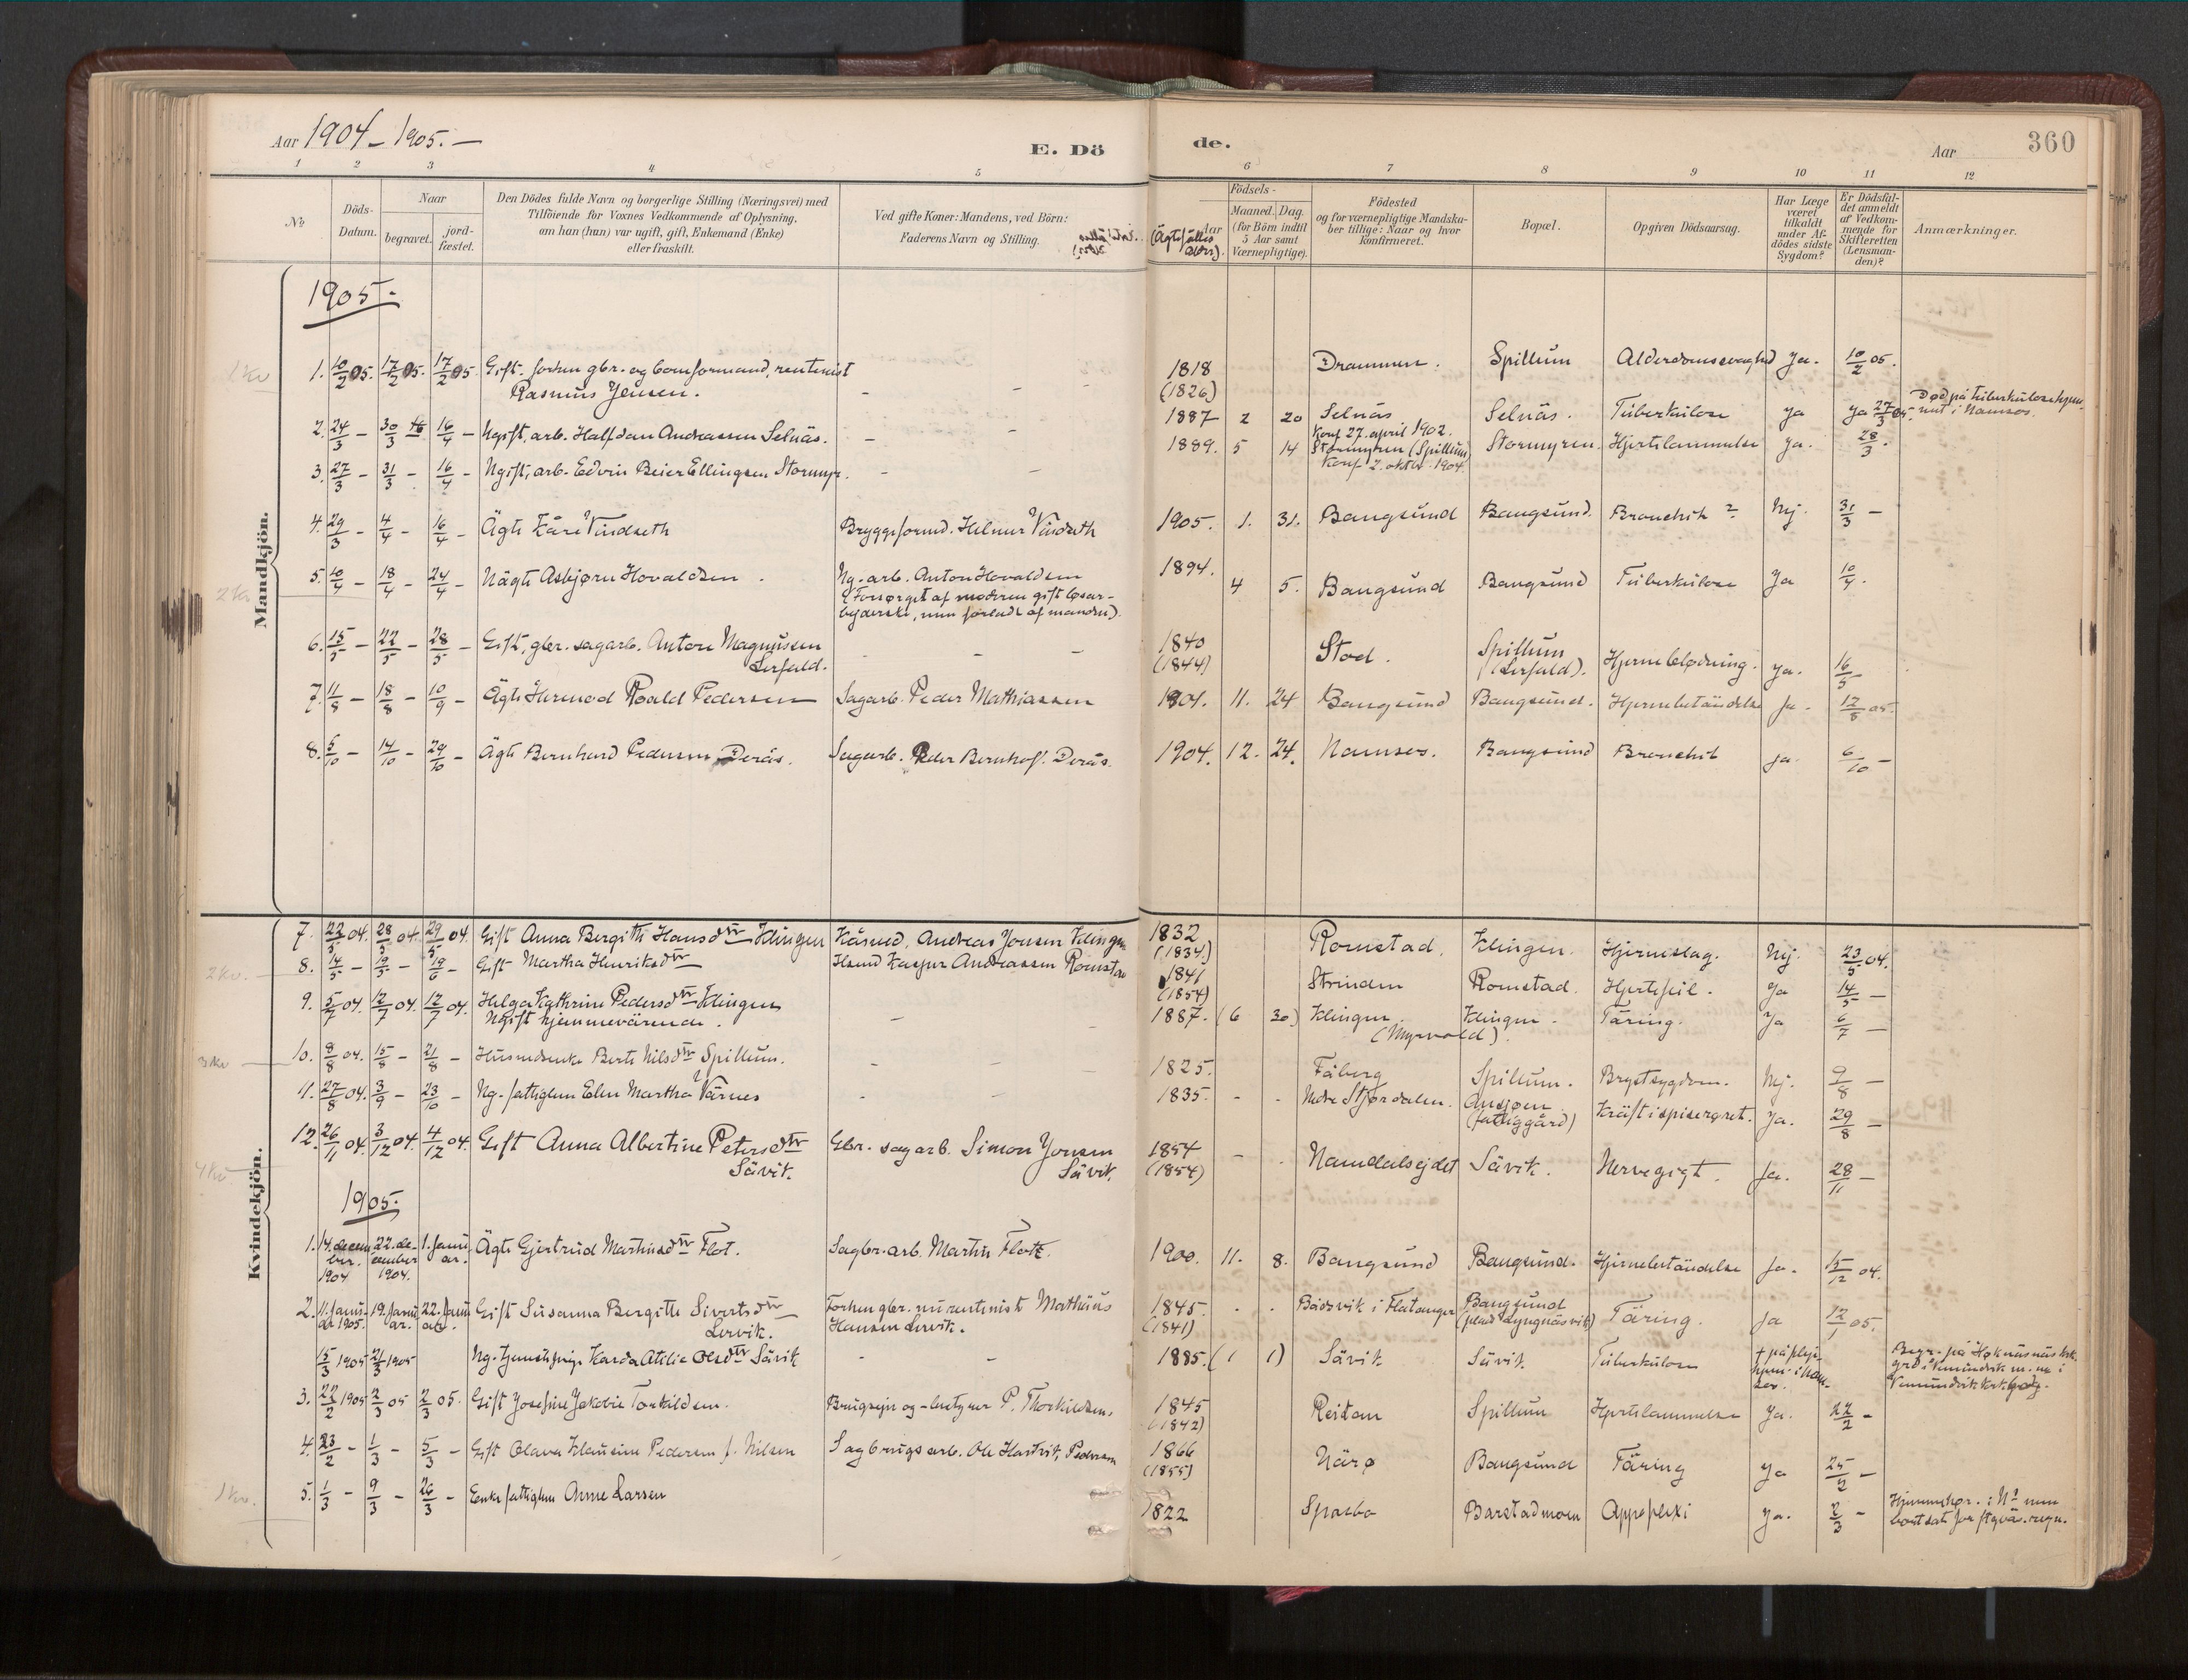 Aar 1904-1905.-
E. Dö de.
Aar
360
1 2 3 4 5 6 7 8 9 10 11 12
No
Döds-Datum.
Naar
begravet.
jord-fæstet.
Den Dödes fulde Navn og borgerlige Stilling (Næringsvei) med
Tilföiende for Voxnes Vedkommende af Oplysning,
om han (hun) var ugift, gift, Enkemand (Enke)
eller fraskilt.
Ved gifte Koner: Mandens, ved Börn:
Faderens Navn og Stilling.
(Ägtefælles alder).
Födsels-
Aar
Maaned. Dag.
(for Börn indtil
5 Aar samt
Værnepligtige).
Födested
og for værnepligtige Mandska-
ber tillige: Naar og hvor
konfirmeret.
Bopæl.
Opgiven Dödsaarsag.
Har Læge
været
tilkaldt
under Af-
dödes sidste
Sygdom?
Er Dödsfal-
det anmeldt
af Vedkom-
mende for
Skifteretten
(Lensman-
den)?
Anmærkninger.
Mandkjön.
1905.-
1. 10/2 05. 17/2 05. 17/2 05. Gift. forhen gbr. og bomformand, rentenist - - - 1818 Drammen. Spillum Alderdomssvaghed Ja. 10/2 05.
Rasmus Jensen. (1826)
2. 24/3 - 30/3 16/4 - Ugift, arb. Halfdan Andreassen Selnäs. - - 1887 2 20 Selnäs Selnäs. Tuberkulose Ja Ja 27/3 05. Död på tuberkulosehjem-
met i Namsos.
Konf 27. april 1902.
3. 27/3 - 31/3 - 16/4 - Ugift, arb. Edvin Beier Ellingsen Stormyr. - - 1889. 5 14 Stormyren (Spillum) Stormyren. Hjertelammelse Ja. 28/3.
Konf 2. oktbr. 1904.
4. 29/3 - 4/4 - 16/4 - Ägte Kåre Vindseth Bryggeformd. Helmer Vindseth 1905. 1. 31. Bangsund Bangsund. Bronchit ? Nej. 31/3 -
5. 10/4 - 18/4 - 24/4 - Uägte Asbjørn Hovaldsen. Ug. arb. Anton Hovaldsen 1894. 4 5. Bangsund Bangsund Tuberkulose Ja 10/4.
(Forsørget af moderen gift løsar-
bejderske, men forladt af manden).
6. 15/5 - 22/5 - 28/5 - Gift, gbr. sagarb. Anton Magnussen - - - 1840 Stod. Spillum Hjerneblødning. Ja. 16/5 -
Lerfald. (1844) (Lerfald).
7. 11/8 - 18/8 - 10/9 - Ägte Hermod Roald Pedersen Sagarb. Peder Mathiassen 1904. 11. 24 Bangsund Bangsund. Hjernebetändelse Ja. 12/8 05.
8. 5/10 - 14/10 - 29/10 - Ägte Bernhard Pedersen Derås. Sagarb. Peder Bernhof. Derås. 1904. 12. 24. Namsos. Bangsund Bronchit Ja. 6/10 -
Kvindekjön.
7. 22/5 04. 28/5 04. 29/5 04. Gift Anna Bergitte Hansdtr Klingen Andreas Jonsen Klingen 1832 Romstad. Klingen. Hjerneslag. Nej. 23/5 04.
(1834)
8. 14/5 - 19/5 - 19/6 - Gift Martha Henriksdtr Husmd Kasper Andreassen Romstad 1841 Strinden Romstad. Hjertefeil. Ja 14/5 -
(1854)
9. 5/7 04. 12/7 04. 12/7 04. Helga Kathrine Pedersdtr Klingen - - 1887. (6 30) Klingen. Klingen. Täring. Ja 6/7 -
Ugift hjemmevärende. (Myrvold).
10. 8/8 04. 15/8 - 21/8 - Husmdsenke Berte Nilsdtr Spillum. - - 1825. Fåberg Spillum. Brystsygdom. Nej. 9/8 -
11. 27/8 04. 3/9 - 23/10 - Ug. fattiglem Elen Martha Värnes - - 1835. - - Nedre Stjørdalen. Ansjøen Kräft i spiserøret. Ja. 29/8 -
(fattiggård)
12. 26/11 04. 3/12 04. 4/12 04. Gift Anna Albertine Petersdtr Gbr. sagarb. Simon Jonsen 1854 - . Namdalsejdet Sävik. Nervegigt. Ja. 28/11 -
Sävik. Sävik. (1854)
1905.
1. 14. decem-ber 1904 22. de-cember 1904. 1. janu-ar. Ägte Gjertrud Martinsdtr Flot. Sagbr. arb. Martin Flott. 1900. 11. 8. Bangsund Bangsund. Hjernebetändelse Ja. 15/12 04.
2. 11. janu-ar 1905. 19. janu-ar. 22. janu-ar. Gift Susanna Bergitte Sivertsdtr Forhen gbr. nu rentenist Mathias 1845. - . Bådsvik i Flatanger Bangsund Täring. Ja 12/1 05.
Lervik. Hansen Lervik. (1841) (plads Lyngnäsvik)
15/3 1905 21/3 1905 Ug. tjenestepige Karda Atilie Olsdtr Sävik - - 1885. (1 1) Sävik Sävik. Tuberkulose + på pleje-
hjem i Nam-
sos. Begr. på Høknäsnäs kirk-
3. 22/2 1905 2/3 05 2/3 05. Gift Josefine Jakobie Torkildsen. P. Thorkildsen. 1845 Reitan Spillum Hjertelammelse Ja. 22/2 -
(1842)
4. 23/2 - 1/3 - 5/3 - Gift Olava Klausine Pedersen f. Nilsen Sagbrugsarb. Ole Hartvik Pedersen 1866 Närø Bangsund Täring Ja 25/2 -
(1855)
5. 1/3 - 9/3 - 26/3 - Enke fattiglem Anne Larsen 1822 Sparbo Barstadmoen Appoplexi Ja. 2/3 -
1 Kv
2 Kv.
2 Kv.
3 Kv
4 Kv
1 Kv.